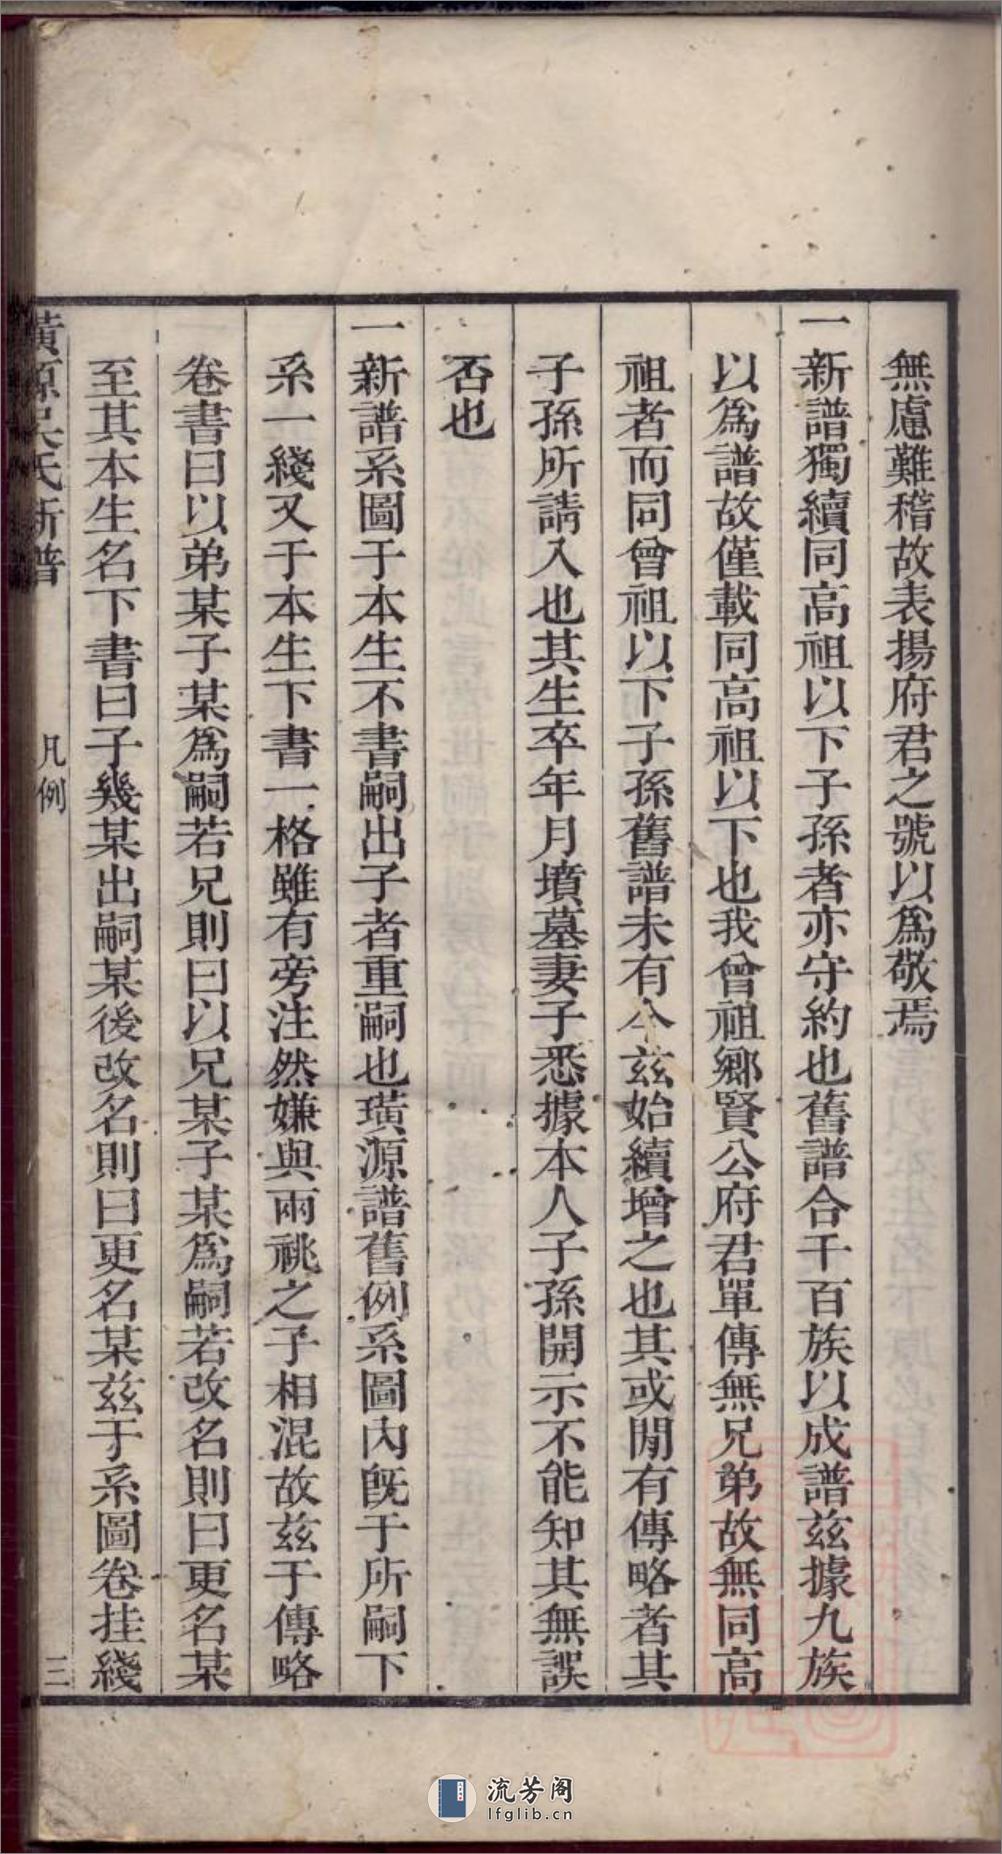 無慮難稽故表揚府君之號以爲敬焉
一新譜獨續同高祖以下子孫者亦守約也舊譜合千百族以成譜兹據九族
以爲譜故僅載同高祖以下也我曾祖鄉賢公府君單傳無兄弟故無同高
祖者而同曾祖以下子孫舊譜未有今兹始續增之也其或閒有傳略者其
子孫所請入也其生卒年月墳墓妻子悉據本人子孫開示不能知其無誤
否也
一新譜系圖于本生不書嗣出子者重嗣也璜源譜舊例系圖內旣于所嗣下
系一綫又于本生下書一格雖有旁注然嫌與兩祧之子相混故兹于傳略
卷書曰以弟某子某爲嗣若兄則曰以兄某子某爲嗣若改名則曰更名某
至其本生名下書曰子幾某出嗣某後改名則曰更名某兹于系圖卷挂綫
璜源吳氏新譜
凡例
三
流芳阁
lfglib.cn